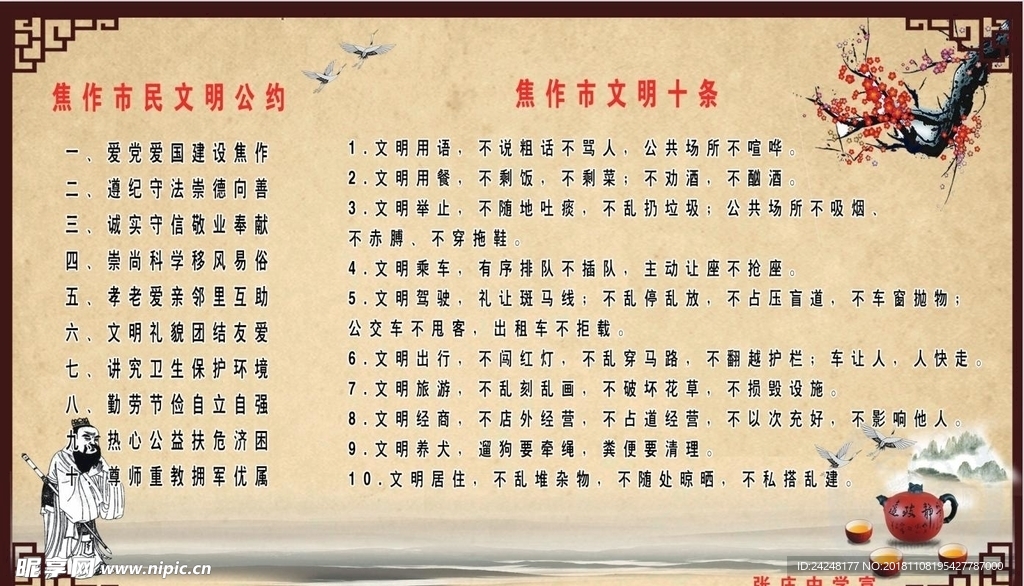 焦作市民文明公约
一、爱党爱国建设焦作
二、遵纪守法崇德向善
三、诚实守信敬业奉献
四、崇尚科学移风易俗
五、孝老爱亲邻里互助
六、文明礼貌团结友爱
七、讲究卫生保护环境
八、勤劳节俭自立自强
九、热心公益扶危济困
十、尊师重教拥军优属
焦作市文明十条
1.文明用语，不说粗话不骂人，公共场所不喧哗。
2.文明用餐，不剩饭，不剩菜；不劝酒，不酗酒。
3.文明举止，不随地吐痰，不乱扔垃圾；公共场所不吸烟、
不赤膊、不穿拖鞋。
4.文明乘车，有序排队不插队，主动让座不抢座。
5.文明驾驶，礼让斑马线；不乱停乱放，不占压盲道，不车窗抛物；
公交车不甩客，出租车不拒载。
6.文明出行，不闯红灯，不乱穿马路，不翻越护栏；车让人，人快走。
7.文明旅游，不乱刻乱画，不破坏花草，不损毁设施。
8.文明经商，不店外经营，不占道经营，不以次充好，不影响他人。
9.文明养犬，遛狗要牵绳，粪便要清理。
10.文明居住，不乱堆杂物，不随处晾晒，不私搭乱建。
昵享网 www.nipic.cn
ID:24248177 NO:20181108195427787000